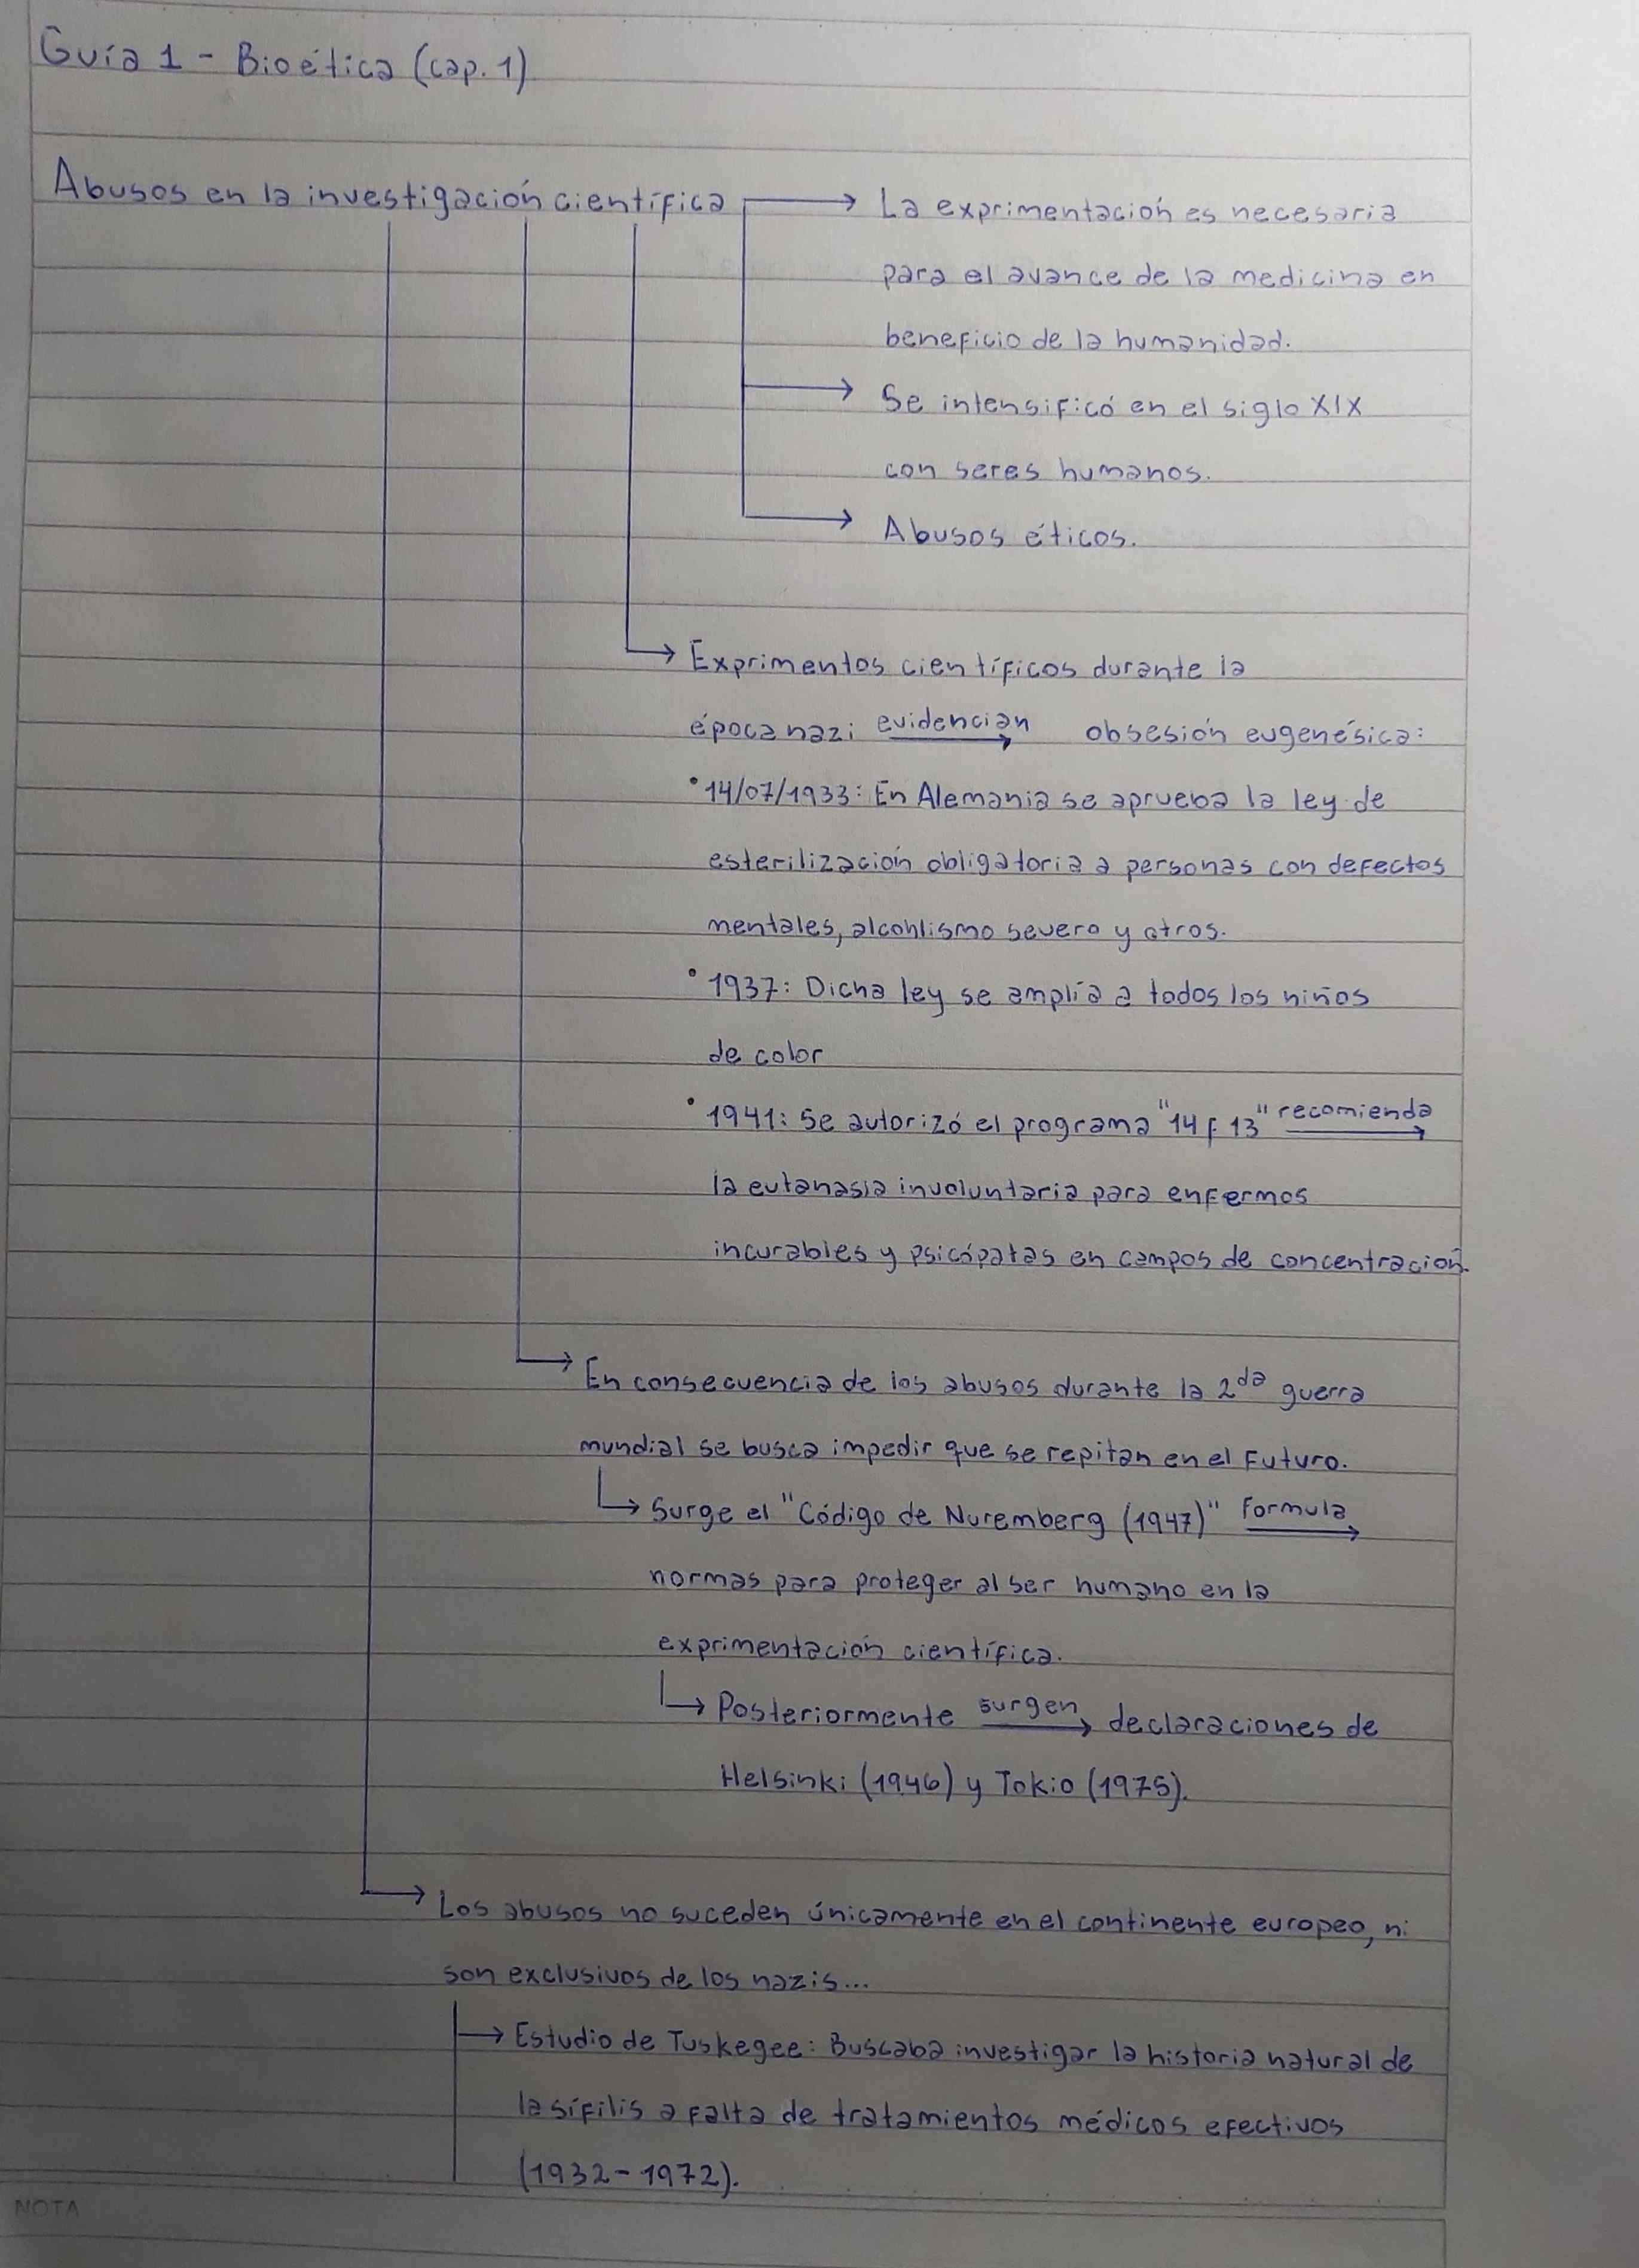 Guía 1 - Bioética (cap. 1)
Abusos en la investigación científica → La exprimentación es necesaria
para el avance de la medicina en
beneficio de la humanidad.
→ Se intensificó en el siglo XIX
con seres humanos.
→ Abusos éticos.
→ Exprimentos científicos durante la
época nazi evidencian → obsesión eugenésica:
• 14/07/1933: En Alemania se aprueba la ley de
esterilización obligatoria a personas con defectos
mentales, alcohlismo severo y otros.
• 1937: Dicha ley se amplía a todos los niños
de color
• 1941: Se autorizó el programa "14 F 13" recomienda →
la eutanasia involuntaria para enfermos
incurables y psicópatas en campos de concentración.
→ En consecuencia de los abusos durante la 2da guerra
mundial se busca impedir que se repitan en el futuro.
→ Surge el "Código de Nuremberg (1947)" formula →
normas para proteger al ser humano en la
exprimentación científica.
→ Posteriormente surgen → declaraciones de
Helsinki (1946) y Tokio (1975).
→ Los abusos no suceden únicamente en el continente europeo, ni
son exclusivos de los nazis...
→ Estudio de Tuskegee: Buscaba investigar la historia natural de
la sífilis a falta de tratamientos médicos efectivos
(1932 - 1972).
NOTA